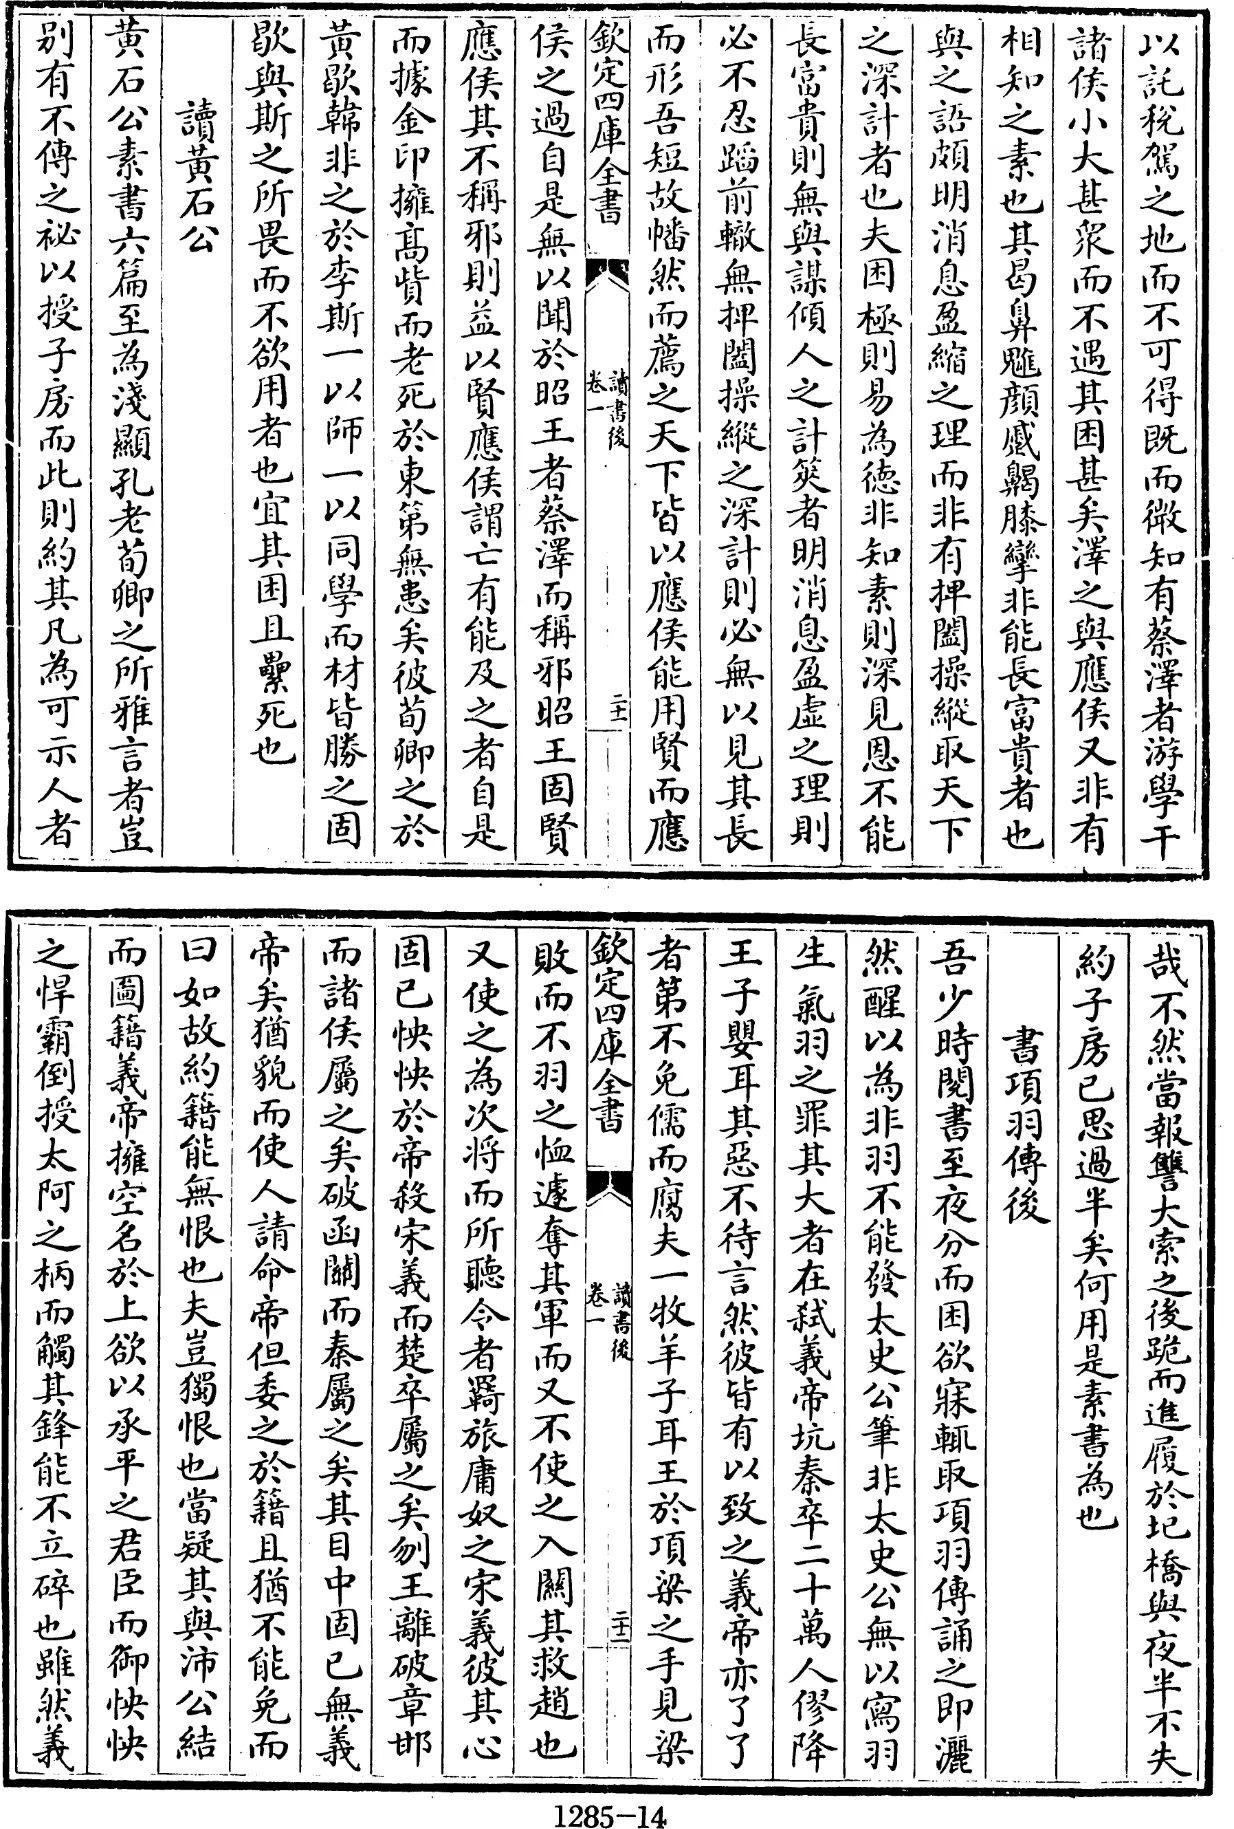 以託稅駕之地而不可得既而微知有蔡澤者游學干
諸侯小大甚衆而不遇其困甚矣澤之與應侯又非有
相知之素也其曷鼻魋顔蹙齃膝攣非能長富貴者也
與之語頗明消息盈縮之理而非有押闔操縱取天下
之深計者也夫困極則易為德非知素則深見恩不能
長富貴則無與謀傾人之計筴者明消息盈虛之理則
必不忍蹈前轍無押闔操縱之深計則必無以見其長
而形吾短故幡然而薦之天下皆以應侯能用賢而應
欽定四庫全書
讀書後
卷一
二十一
侯之過自是無以聞於昭王者蔡澤而稱邪昭王固賢
應侯其不稱邪則益以賢應侯謂亡有能及之者自是
而據金印擁髙貲而老死於東第無患矣彼荀卿之於
黃歇韓非之於李斯一以師一以同學而材皆勝之固
歇與斯之所畏而不欲用者也宜其困且纍死也
讀黃石公
黃石公素書六篇至為淺顯孔老荀卿之所雅言者豈
別有不傳之祕以授子房而此則約其凡為可示人者
哉不然當報讐大索之後跪而進履於圯橋與夜半不失
約子房已思過半矣何用是素書為也
書項羽傳後
吾少時閱書至夜分而困欲寐輒取項羽傳誦之即灑
然醒以為非羽不能發太史公筆非太史公無以寫羽
生氣羽之罪其大者在弒義帝坑秦卒二十萬人僇降
王子嬰耳其惡不待言然彼皆有以致之義帝亦了了
者第不免儒而腐夫一牧羊子耳王於項梁之手見梁
欽定四庫全書
讀書後
卷一
二十二
敗而不羽之恤遽奪其軍而又不使之入關其救趙也
又使之為次將而所聽令者羇旅庸奴之宋義彼其心
固已怏怏於帝殺宋義而楚卒屬之矣刎王離破章邯
而諸侯屬之矣破函關而秦屬之矣其目中固已無義
帝矣猶貌而使人請命帝但委之於籍且猶不能免而
曰如故約籍能無恨也夫豈獨恨也當疑其與沛公結
而圖籍義帝擁空名於上欲以承平之君臣而御怏怏
之悍霸倒授太阿之柄而觸其鋒能不立碎也雖然義
1285-14